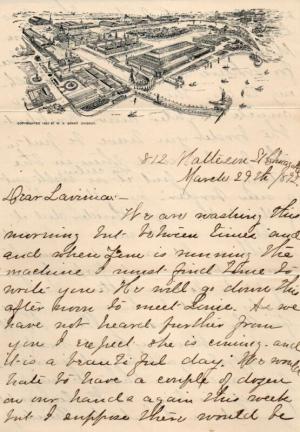 COPYRIGHTED 1891 BY
CHICAGO.
812 St Chicago
March 29th /92
Dear Lavinia:-
We are washing this
morning but between times and
and when Jem is running the
machine I must find time to
write you. We will go down this
after noon to meet As we
have not heard further from
you I expect she is coming and
it is a beautiful day. We would
hate to have a couple of dozen
on our hands again this week
but I suppose there would be